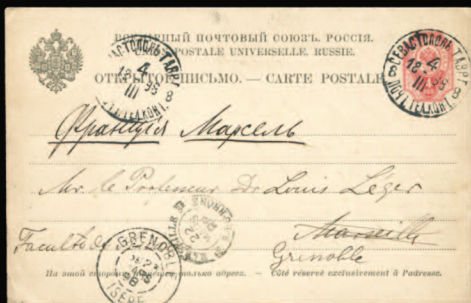 ВСЕМІРНЫЙ ПОЧТОВЫЙ СОЮЗЪ. РОССІЯ.
POSTALE UNIVERSELLE. RUSSIE.
ОТКРЫТОЕ ПИСЬМО. — CARTE POSTALE
СЕВАСТОПОЛЬ ТАВР. Г.
4
18 98
III
ПОЧТ. ТЕЛ. КОНТ.
СЕВАСТОПОЛЬ ТАВР. Г.
4
18 98
III
ПОЧТ. ТЕЛ. КОНТ.
Франція Марсель
Mr. le Professeur Dr Louis Léger
Faculté de
Marseille
Grenoble
GRENOBLE
ISÈRE
На этой сторонѣ только адресъ. — Côté réservé exclusivement à l'adresse.